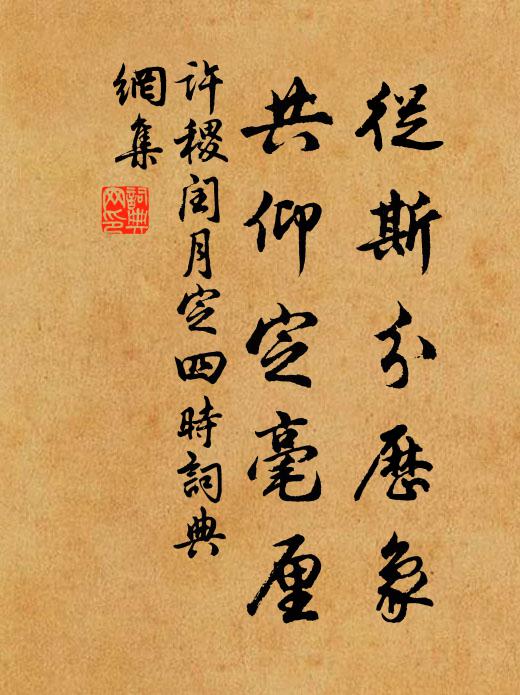 從斯分歷象
共仰定毫厘
許稷閏月定四時詞典
網集
詞典
网印